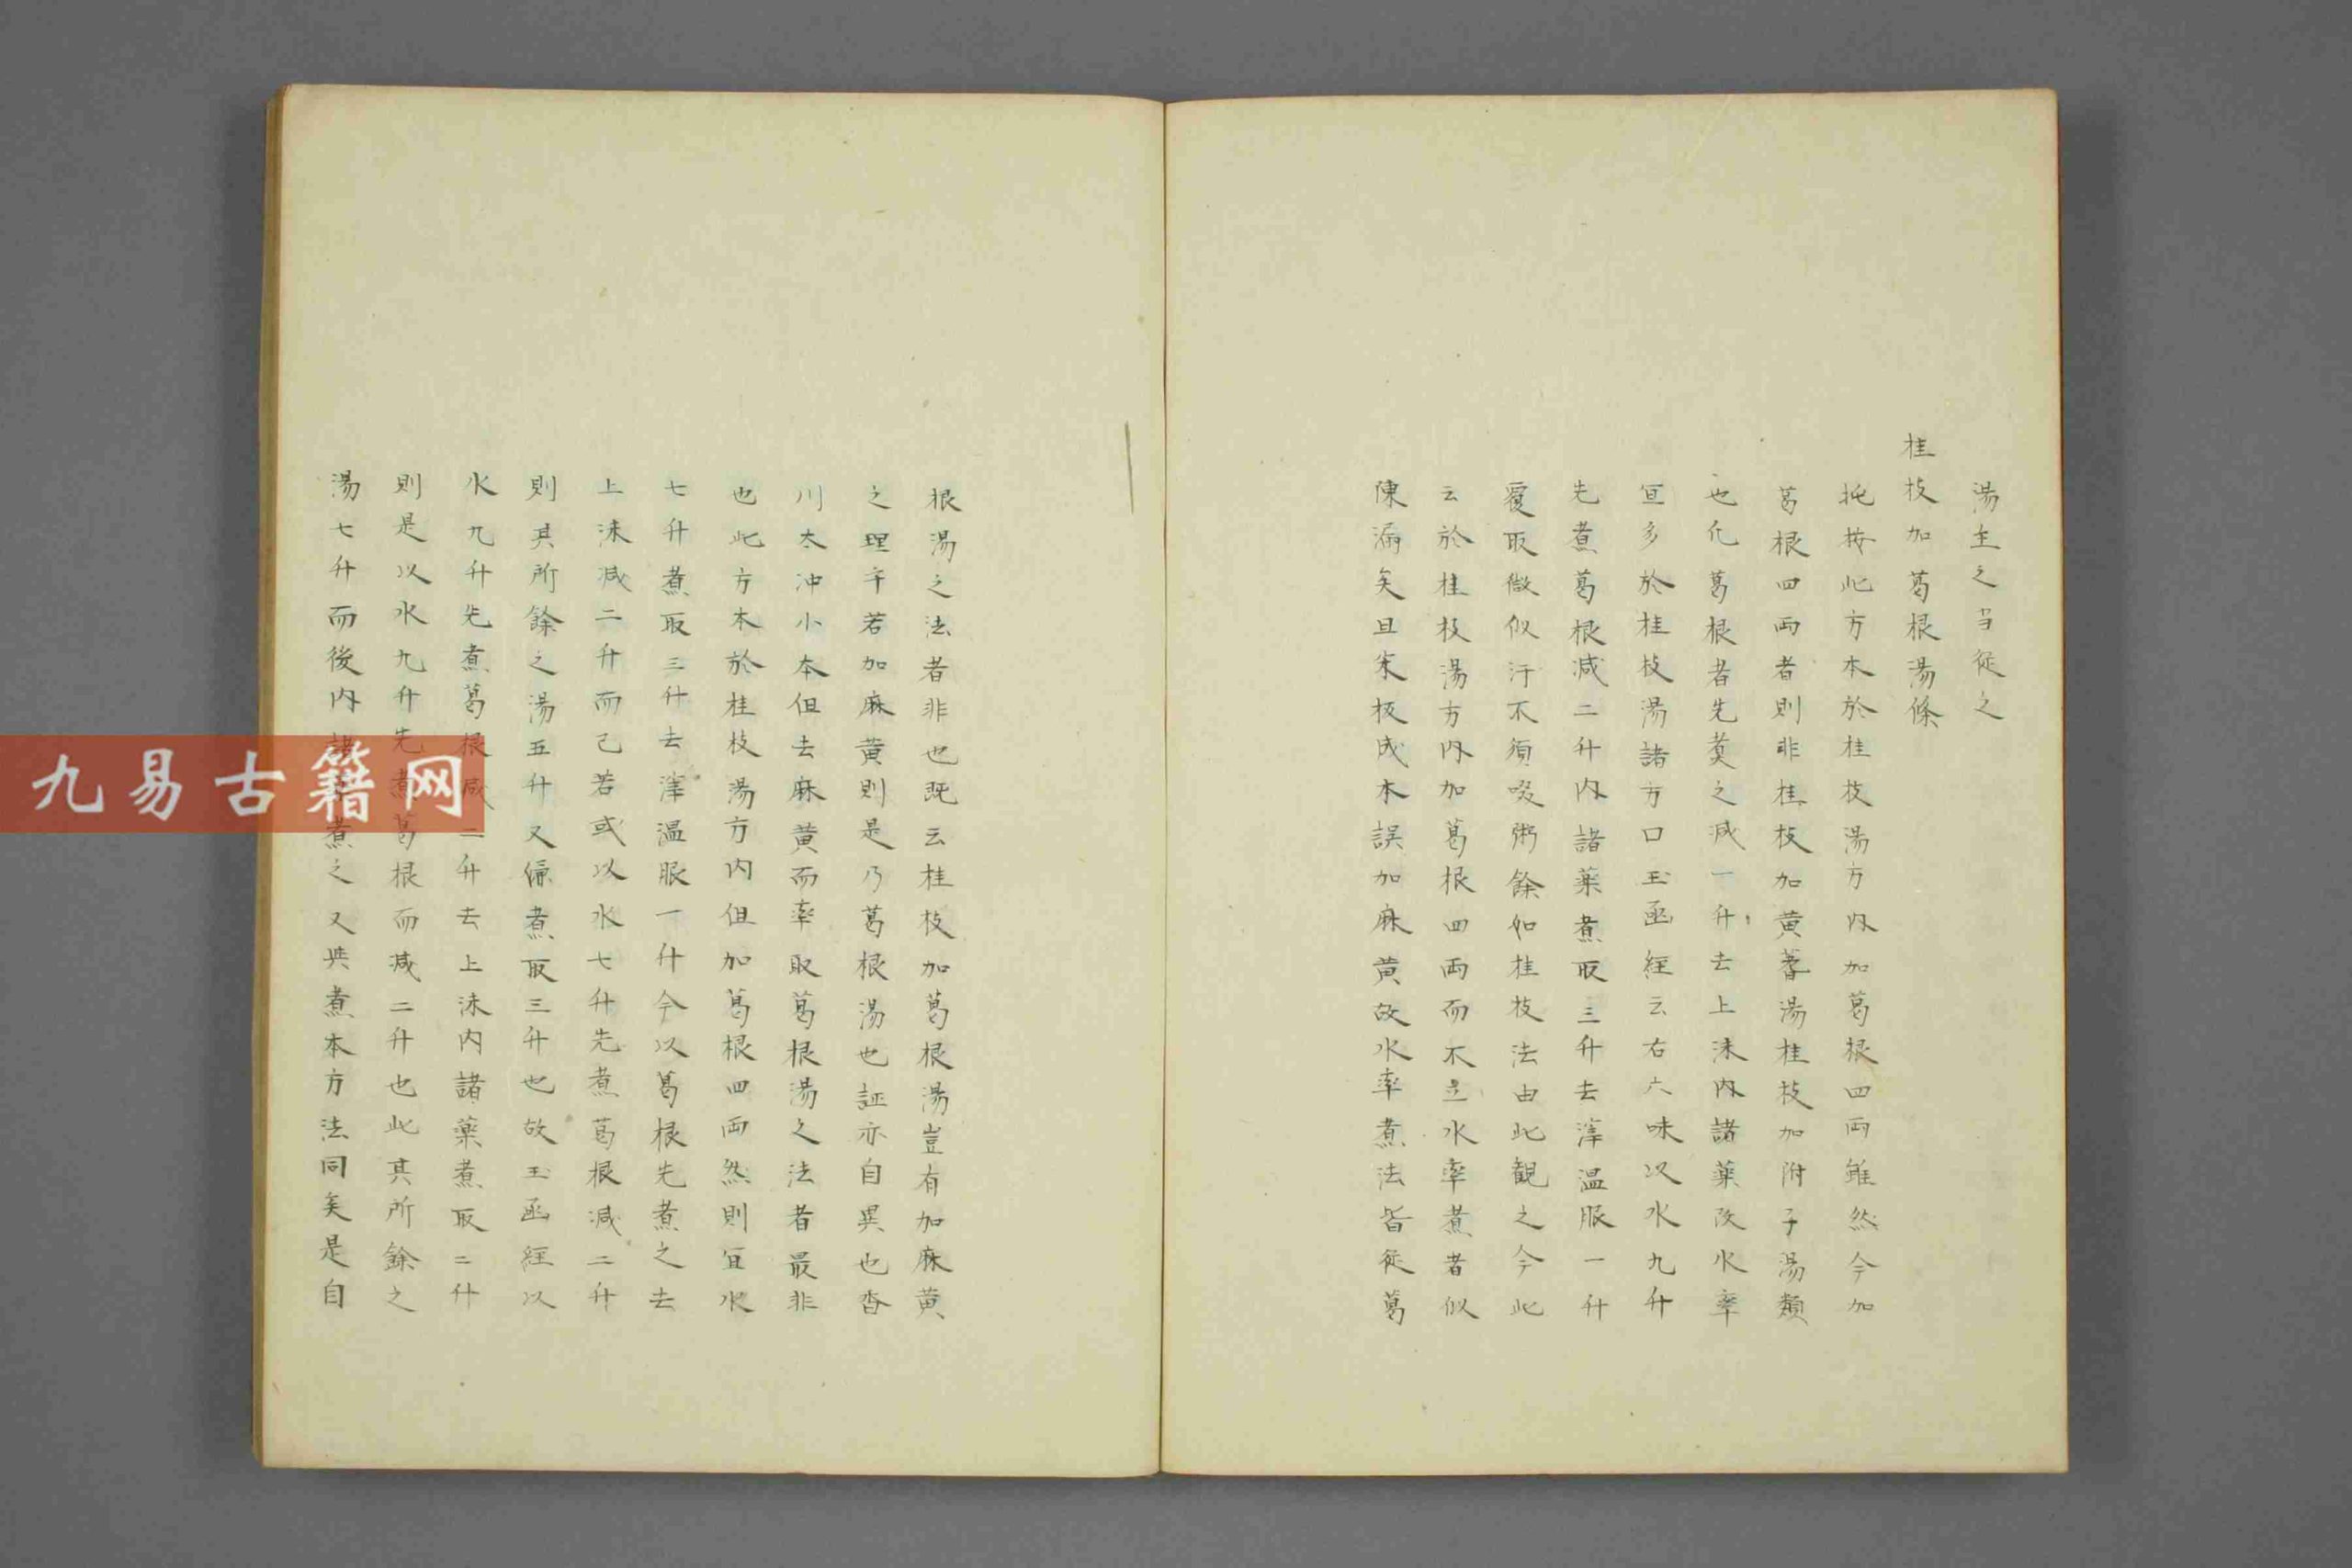 湯主之当従之
桂枝加葛根湯條
按此方本於桂枝湯方内加葛根四両雖然今加
葛根四両者則非桂枝加黄耆湯桂枝加附子湯類
也凡葛根者先煮之减一升去上沫内諸薬改水率
宜多於桂枝湯諸方口玉函経云右六味以水九升
先煮葛根减二升内諸薬煮取三升去滓温服一升
覆取微似汗不須啜粥餘如桂枝法由此観之今此
云於桂枝湯方内加葛根四両而不 水率煮者似
陳漏矣且宋板成本誤加麻黄故水率煮法皆従葛
根湯之法者非也既云桂枝加葛根湯豈有加麻黄
之理乎若加麻黄則是乃葛根湯也証亦自異也香
川太冲小本但去麻黄而率取葛根湯之法者最非
也此方本於桂枝湯方内但加葛根四両然則宜水
七升煮取三升去滓温服一升今以葛根先煮之去
上沫减二升而已若或以水七升先煮葛根减二升
則其所餘之湯五升又 煮取三升也故玉函経以
水九升先煮葛根减二升去上沫内諸薬煮取二升
則是以水九升先煮葛根而减二升也此其所餘之
湯七升而後内諸 煮之又 煮本方法同矣是自
九易古籍网